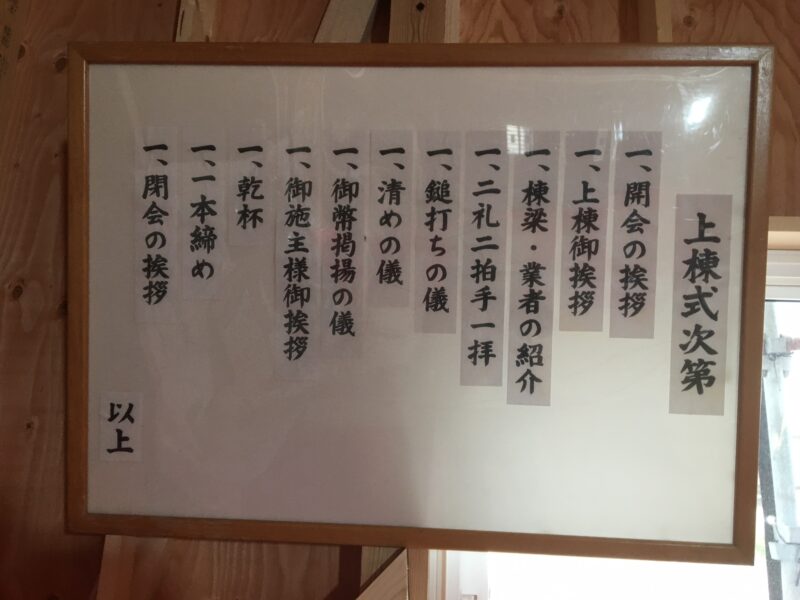 上棟式次第
一、開会の挨拶
一、上棟御挨拶
一、棟梁・業者の紹介
一、二礼二拍手一拝
一、鎚打ちの儀
一、清めの儀
一、御幣掲揚の儀
一、御施主様御挨拶
一、乾杯
一、一本締め
一、閉会の挨拶
以上